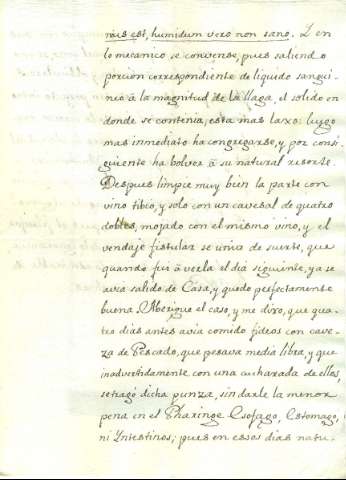 nius est, humidum vero non sano. Y en
lo mecanico se convense, pues saliendo
porcion correspondiente de liquido sangui-
neo à la magnitud de la llaga, el solido en
donde se contenia, esta mas laxo: luego
mas inmediato ha congregarse, y por consi-
guiente ha bolver à su natural resorte.
Despues limpie muy bien la parte con
vino tibio, y solo con un cavesal de quatro
dobles, mojado con el mismo vino, y el
vendaje fistular se uniò de suerte, que
quando fui à verla el dia siguiente, ya se
avia salido de Casa, y quedo perfectamente
buena. Aberigue el caso, y me dixo, que qua-
tro dias antes avia comido fideos con cave-
za de Pescado, que pesava media libra, y que
inadvertidamente con una cucharada de ellos,
se tragó dicha punza, sin darle la menor
pena en el Pharinge Esofago, Estomago,
ni Yntestinos; pues en essos dias natu-